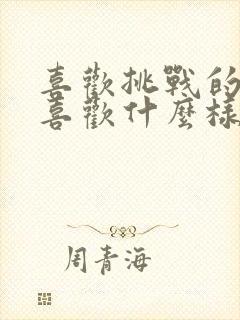 喜歡挑戰的
喜歡什麼樣
周青海